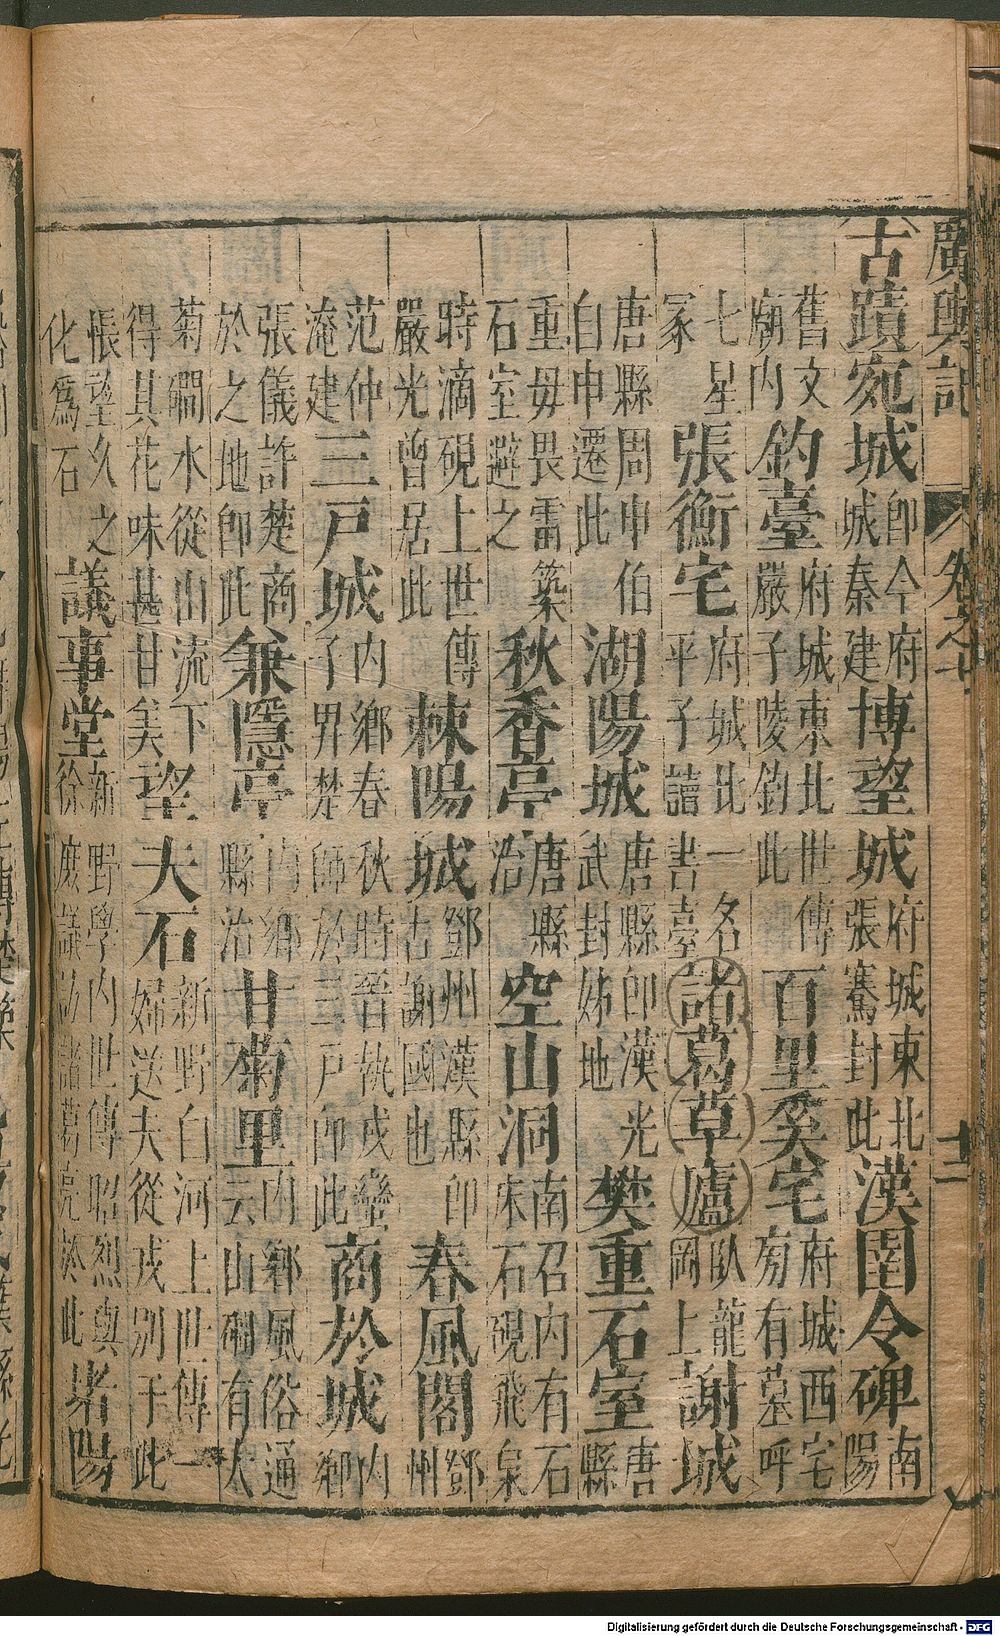 廣輿記 卷之七 十二
古蹟 宛城 即今府城秦建 博望城 府城東北張騫封此 漢圉令碑 南陽
舊文廟內 釣臺 府城東北世傳嚴子陵釣此 百里奚宅 府城西宅旁有墓呼
七星冢 張衡宅 府城北一名平子讀書臺 諸葛草廬 臥龍岡上 謝城
唐縣周申伯自申遷此 湖陽城 唐縣即漢光武封姊地 樊重石室 唐縣
重毋畏雷築石室避之 秋香亭 唐縣治 空山洞 南召內有石床石硯飛泉
時滴硯上世傳嚴光曾居此 棘陽城 鄧州漢縣即古謝國也 春風閣 鄧州
范仲淹建 三戶城 內鄉春秋時晉執戎蠻子界楚師於三戶即此 商於城 內鄉
張儀許楚商於之地即此 兼隱亭 內鄉縣治 甘菊里 內鄉風俗通云山磵有太
菊磵水從山流下得其花味甚甘美 望夫石 新野白河上世傳一婦送夫從戎別于此
悵望久之化爲石 議事堂 新野學內世傳昭烈與徐庶議訪諸葛亮於此 堵陽
Digitalisierung gefördert durch die Deutsche Forschungsgemeinschaft - DFG